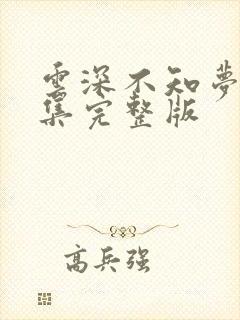 云深不知夢
集完整版
高兵强